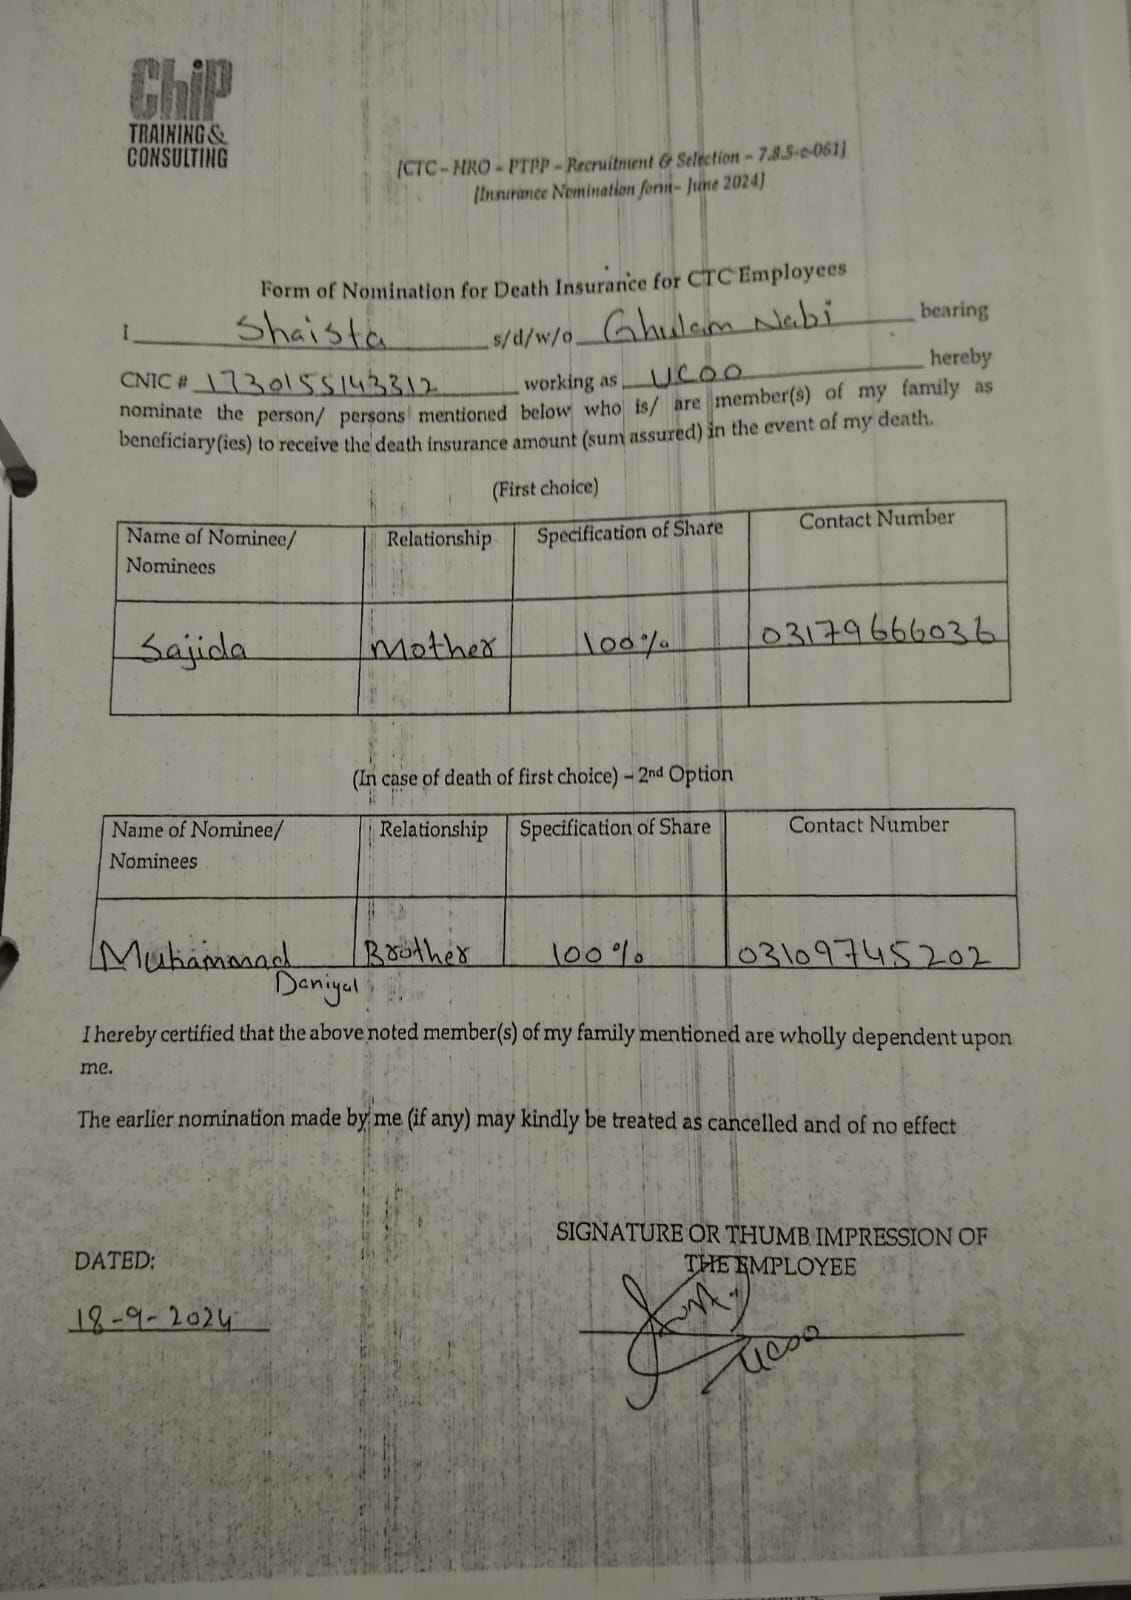 ChiP
TRAINING &
CONSULTING
[CTC – HRO – PTPP – Recruitment & Selection – 7.8.5-c-061]
[Insurance Nomination form– June 2024]
Form of Nomination for Death Insurance for CTC Employees
I Shaista s/d/w/o Ghulam Nabi bearing
CNIC # 1730155143312 working as UCOO hereby
nominate the person/ persons mentioned below who is/ are member(s) of my family as
beneficiary(ies) to receive the death insurance amount (sum assured) in the event of my death.
(First choice)
Name of Nominee/ Relationship Specification of Share Contact Number
Nominees
Sajida Mother 100% 03179666036
(In case of death of first choice) – 2nd Option
Name of Nominee/ Relationship Specification of Share Contact Number
Nominees
Muhammad Brother 100% 03109745202
Daniyal
I hereby certified that the above noted member(s) of my family mentioned are wholly dependent upon
me.
The earlier nomination made by me (if any) may kindly be treated as cancelled and of no effect
SIGNATURE OR THUMB IMPRESSION OF
THE EMPLOYEE
DATED:
18-9-2024
UCOO